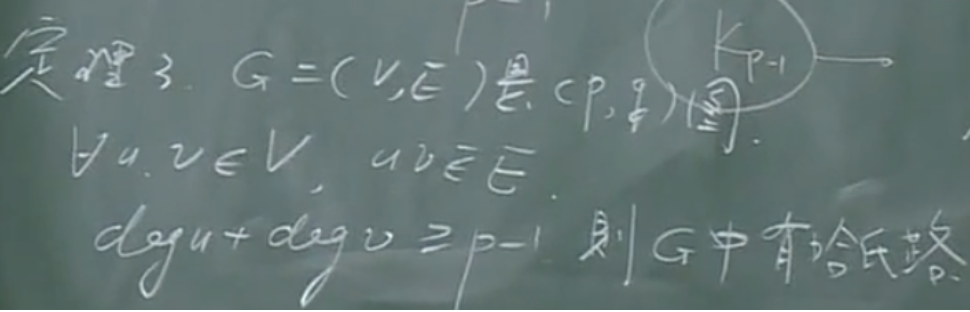 p-1
K_{p-1}
定理3. G=(V,E)是(p,q)图.
∀u.v∈V, uv∉E.
deg u+deg v≥p-1 则G中有哈氏路